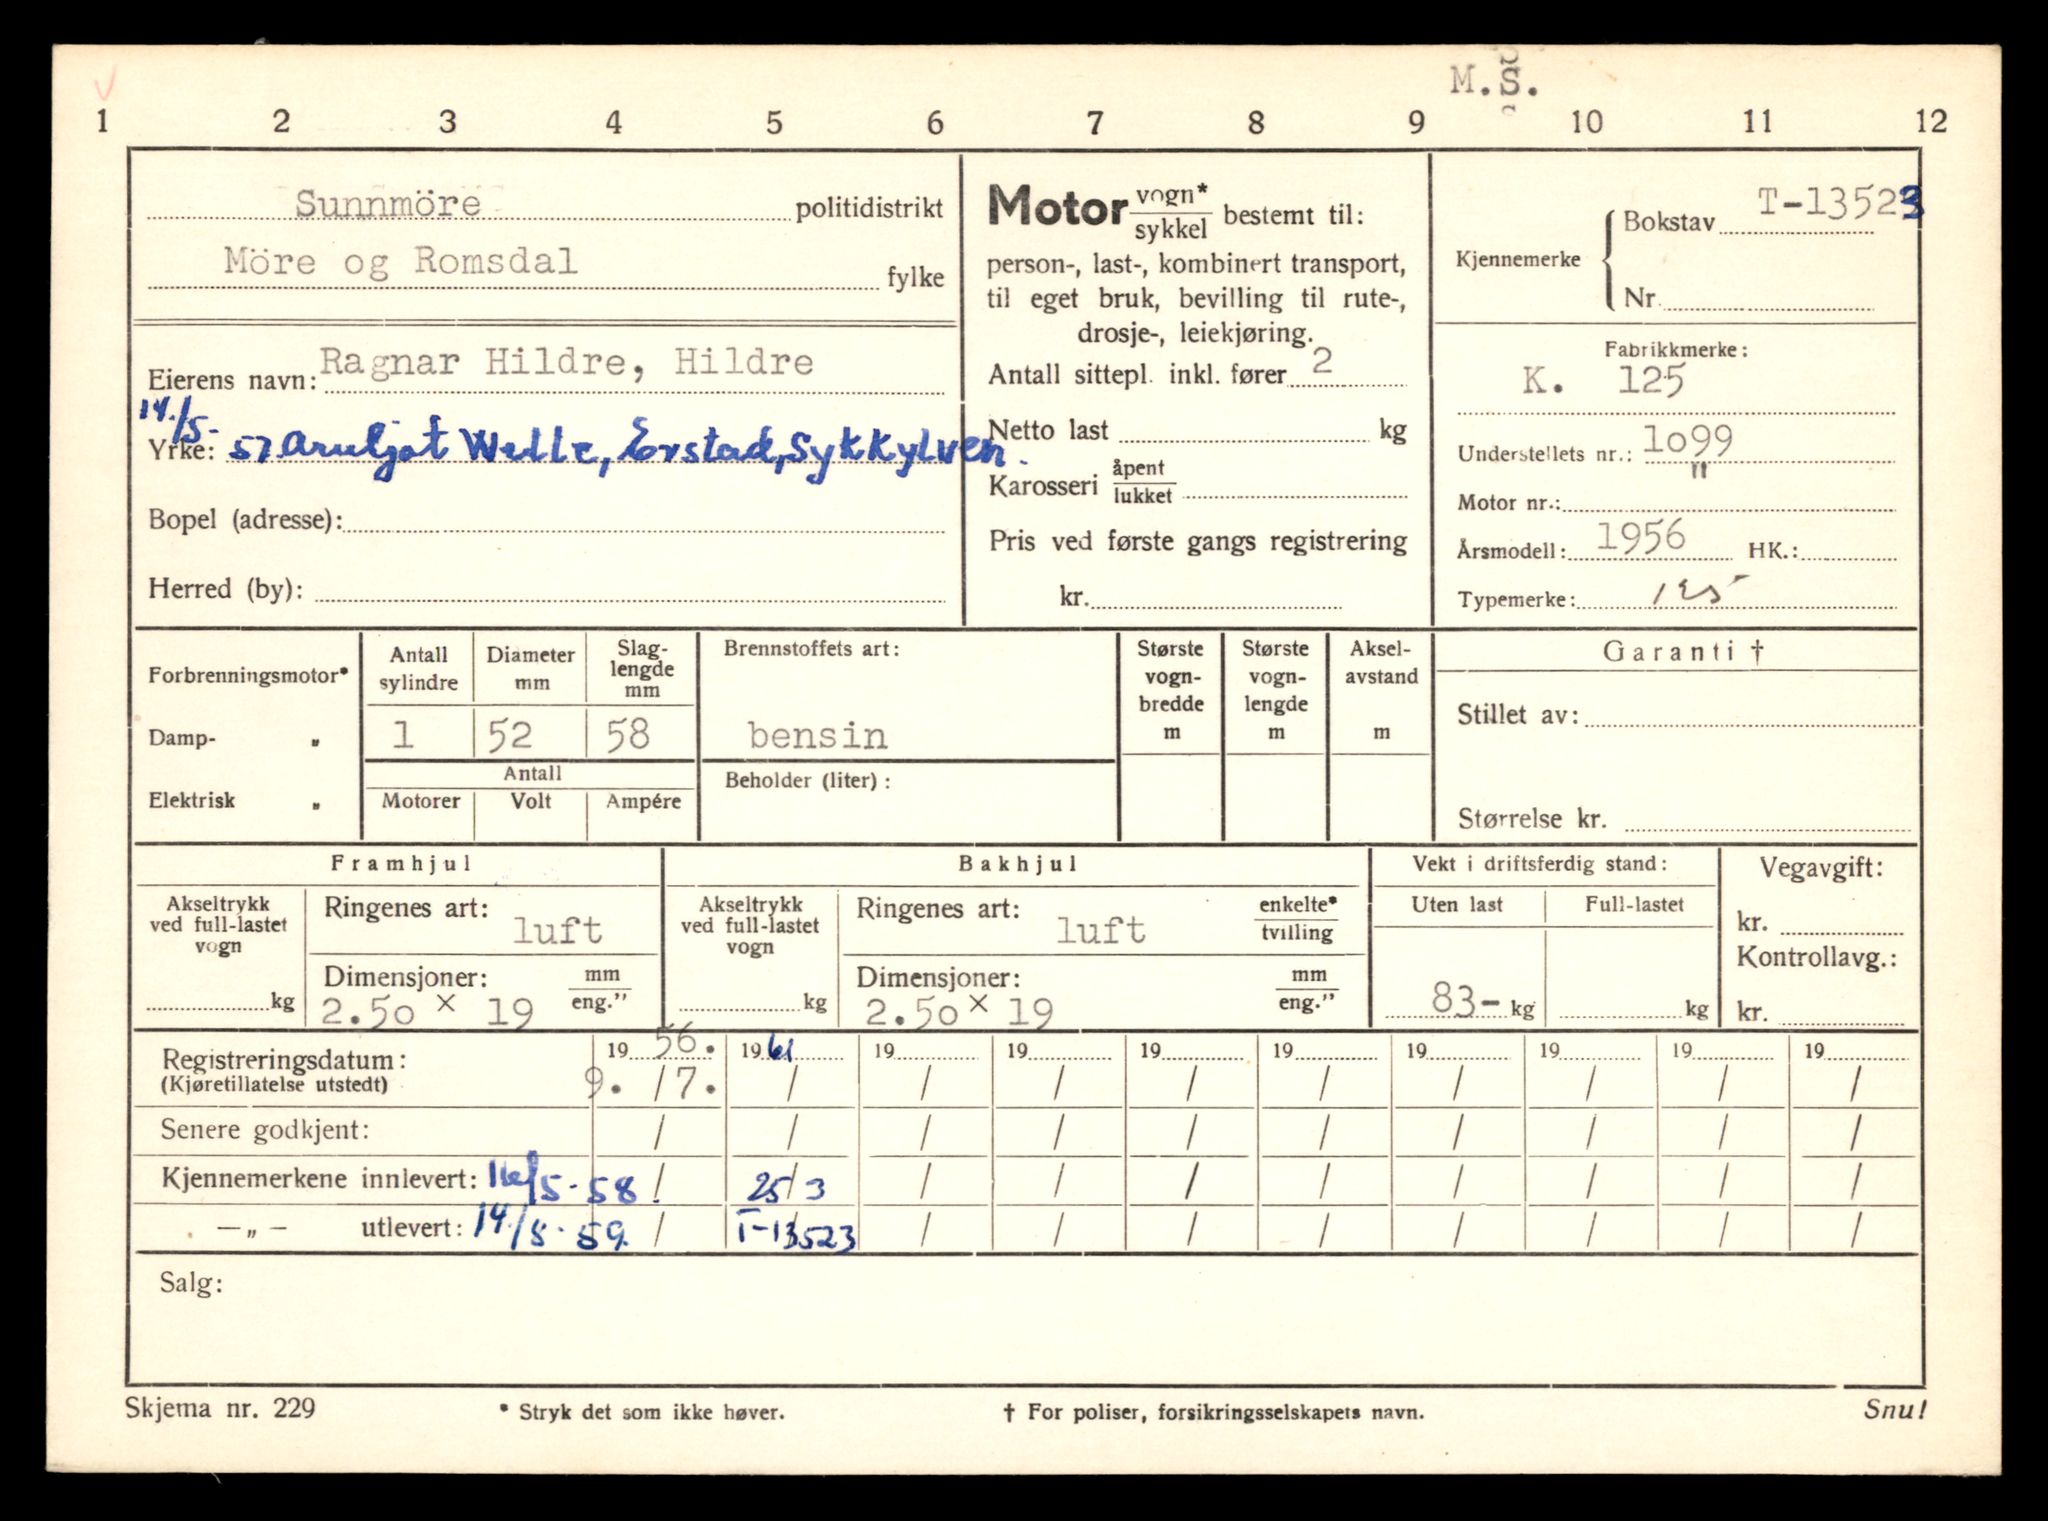 M.S.
1 2 3 4 5 6 7 8 9 10 11 12
Sunnmöre politidistrikt
Möre og Romsdal fylke
Eierens navn: Ragnar Hildre, Hildre
14./5-
Yrke: 57 Arnljot Welle, Erstad, Sykkylven.
Bopel (adresse):
Herred (by):
Motor vogn*/sykkel bestemt til:
person-, last-, kombinert transport,
til eget bruk, bevilling til rute-,
drosje-, leiekjøring.
Antall sittepl. inkl. fører 2
Netto last kg
Karosseri åpent/lukket
Pris ved første gangs registrering
kr.
Kjennemerke { Bokstav T-13523
Nr.
Fabrikkmerke:
K. 125
Understellets nr.: 1o99
Motor nr.: "
Årsmodell: 1956 HK.:
Typemerke: 125
Forbrenningsmotor*
Damp- „
Elektrisk „
Antall sylindre Diameter mm Slag-lengde mm
1 52 58
Antall
Motorer Volt Ampére
Brennstoffets art:
bensin
Beholder (liter):
Største vogn-bredde m
Største vogn-lengde m
Aksel-avstand m
Garanti †
Stillet av:
Størrelse kr.
Framhjul
Akseltrykk ved full-lastet vogn
kg
Ringenes art: luft
Dimensjoner: mm/eng."
2.50 × 19
Bakhjul
Akseltrykk ved full-lastet vogn
kg
Ringenes art: luft enkelte*/tvilling
Dimensjoner: mm/eng."
2.50 × 19
Vekt i driftsferdig stand:
Uten last Full-lastet
83- kg kg
Vegavgift:
kr.
Kontrollavg.:
kr.
Registreringsdatum: 19 56. 19 61 19 19 19 19 19 19 19 19
(Kjøretillatelse utstedt) 9. / 7. / / / / / / / / /
Senere godkjent: / / / / / / / / / /
Kjennemerkene innlevert: 16/5-58. / 25/3 / / / / / / / /
—„— utlevert: 14./5-59. / T-13523 / / / / / / / /
Salg:
Skjema nr. 229 * Stryk det som ikke høver. † For poliser, forsikringsselskapets navn. Snu!